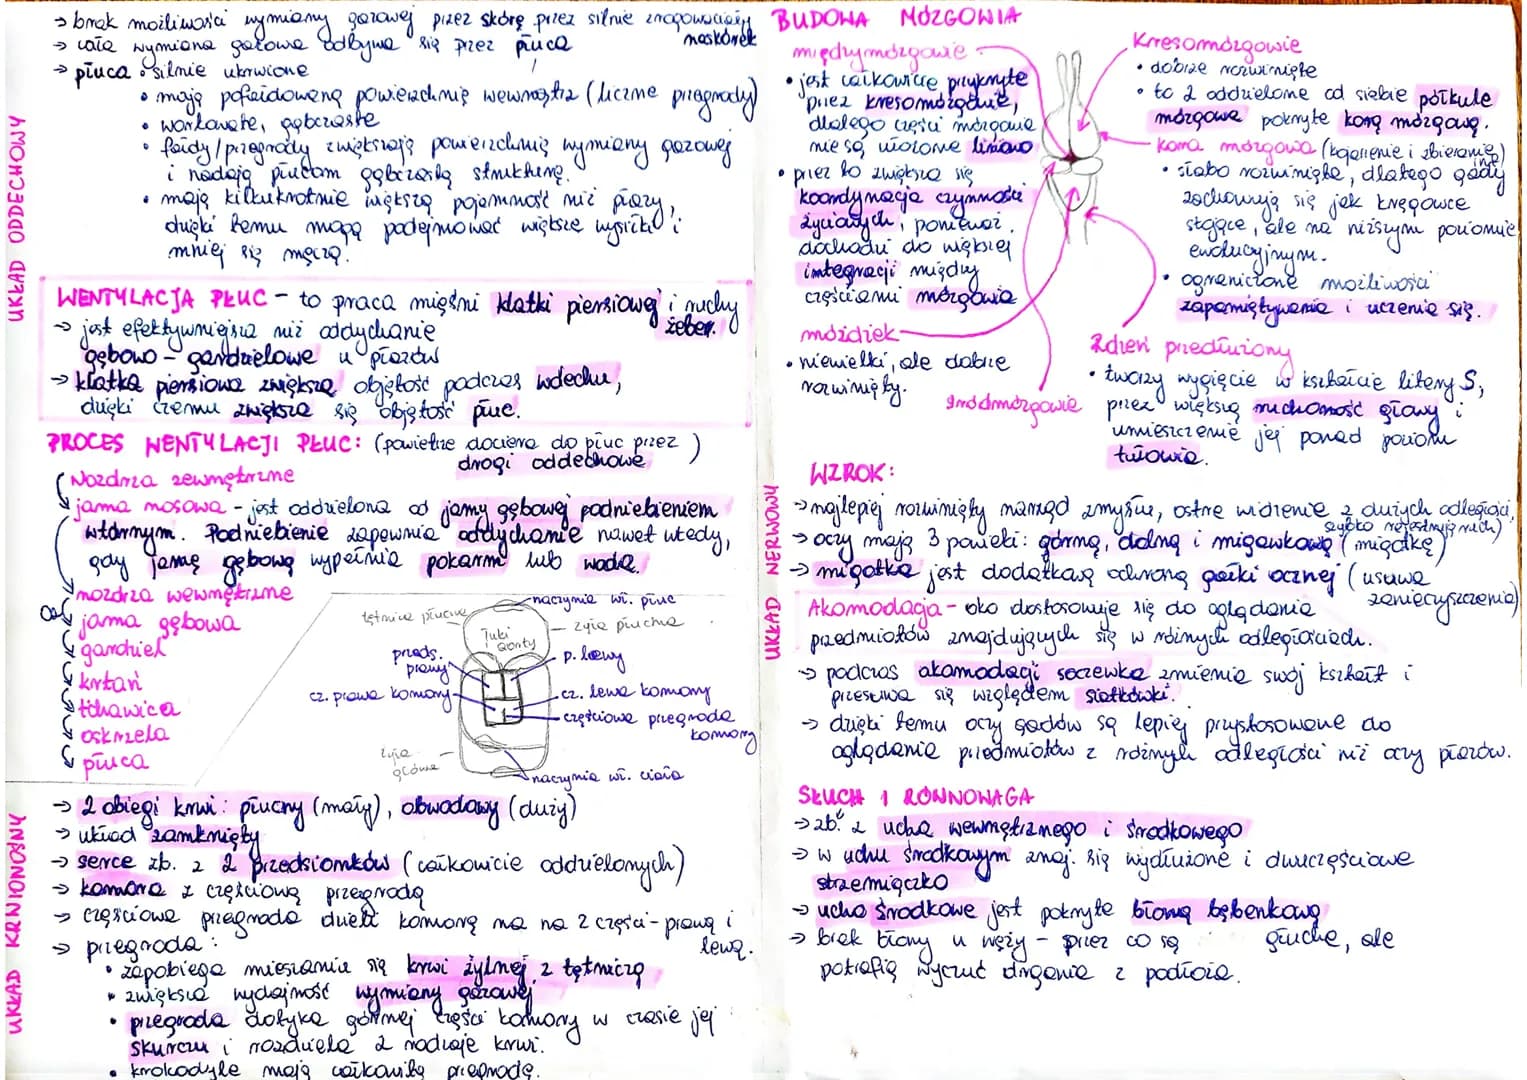 UKŁAD ODDECHOWY
→ brak możliwości wymiany gazowej przez skórę przez silnie zrogowaciały naskórek
→ cała wymiana gazowa odbywa się przez płuca
→ płuca: silnie ukrwione
• mają pofałdowaną powierzchnię wewnątrz (liczne przegrody)
• workowate, gąbczaste
• fałdy/przegrody zwiększają powierzchnię wymiany gazowej
i nadają płucom gąbczastą strukturę.
• mają kilkukrotnie większą pojemność niż płazy,
dzięki temu mogą podejmować większe wysiłki i
mniej się męczą.
WENTYLACJA PŁUC - to praca mięśni klatki piersiowej i ruchy żeber.
→ jest efektywniejsza niż oddychanie
gębowo - gardzielowe u płazów
→ klatka piersiowa zwiększa objętość podczas wdechu,
dzięki czemu zwiększa się objętość płuc.
PROCES WENTYLACJI PŁUC: (powietrze dociera do płuc przez drogi oddechowe)
Nozdrza zewnętrzne
jama nosowa - jest oddzielona od jamy gębowej podniebieniem
wtórnym. Podniebienie zapewnia oddychanie nawet wtedy,
gdy jamę gębową wypełnia pokarm lub woda.
nozdrza wewnętrzne
jama gębowa
gardziel
krtań
tchawica
oskrzela
płuca
tętnica płucna
naczynia wł. płuc
żyła płucna
łuki aorty
przeds. prawy
p. lewy
cz. prawa komory
cz. lewa komory
częściowa przegroda komory
żyła główna
naczynia wł. ciała
UKŁAD KRWIONOŚNY
→ 2 obiegi krwi: płucny (mały), obwodowy (duży)
→ układ zamknięty
→ serce zb. z 2 przedsionków (całkowicie oddzielonych)
→ komora z częściową przegrodą
→ częściowa przegroda dzieli komorę na na 2 części - prawą i lewą.
→ przegroda:
• zapobiega mieszaniu się krwi żylnej z tętniczą
• zwiększa wydajność wymiany gazowej
• przegroda dotyka górnej części komory w czasie jej
skurczu i rozdziela 2 rodzaje krwi.
• krokodyle mają całkowitą przegrodę.
BUDOWA MÓZGOWIA
międzymózgowie
• jest całkowicie przykryte
przez kresomózgowie,
dlatego części mózgowia
nie są ułożone liniowo
• przez to zwiększa się
koordynacja czynności
życiowych, ponieważ
dochodzi do większej
integracji między
częściami mózgowia
móżdżek
• niewielki, ale dobrze
rozwinięty.
śródmózgowie
Kresomózgowie
• dobrze rozwinięte
• to 2 oddzielone od siebie półkule
mózgowe pokryte korą mózgową.
kora mózgowa (kojarzenie i zbieranie inf.)
• słabo rozwinięta, dlatego gady
zachowują się jak kręgowce
stojące, ale na niższym poziomie
ewolucyjnym.
• ograniczone możliwości
zapamiętywania i uczenia się.
Rdzeń przedłużony
• tworzy wygięcie w kształcie litery S,
przez większą ruchomość głowy i
umieszczenie jej ponad poziom
tułowia.
UKŁAD NERWOWY
WZROK:
→ najlepiej rozwinięty narząd zmysłu, ostre widzenie z dużych odległości, szybko rejestrują ruch)
→ oczy mają 3 powieki: górną, dolną i migawkową (migotkę)
→ migotka jest dodatkową ochroną gałki ocznej (usuwa zanieczyszczenia)
Akomodacja - oko dostosowuje się do oglądania
przedmiotów znajdujących się w różnych odległościach.
→ podczas akomodacji soczewka zmienia swój kształt i
przesuwa się względem siatkówki.
→ dzięki temu oczy gadów są lepiej przystosowane do
oglądania przedmiotów z różnych odległości niż oczy płazów.
SŁUCH I RÓWNOWAGA
→ zb. z ucha wewnętrznego i środkowego
→ w uchu środkowym znaj. się wydłużone i dwuczęściowe
strzemiączko
→ ucho środkowe jest pokryte błoną bębenkową
→ brak błony u węży - przez co są głuche, ale
potrafią wyczuć drgania z podłoża.